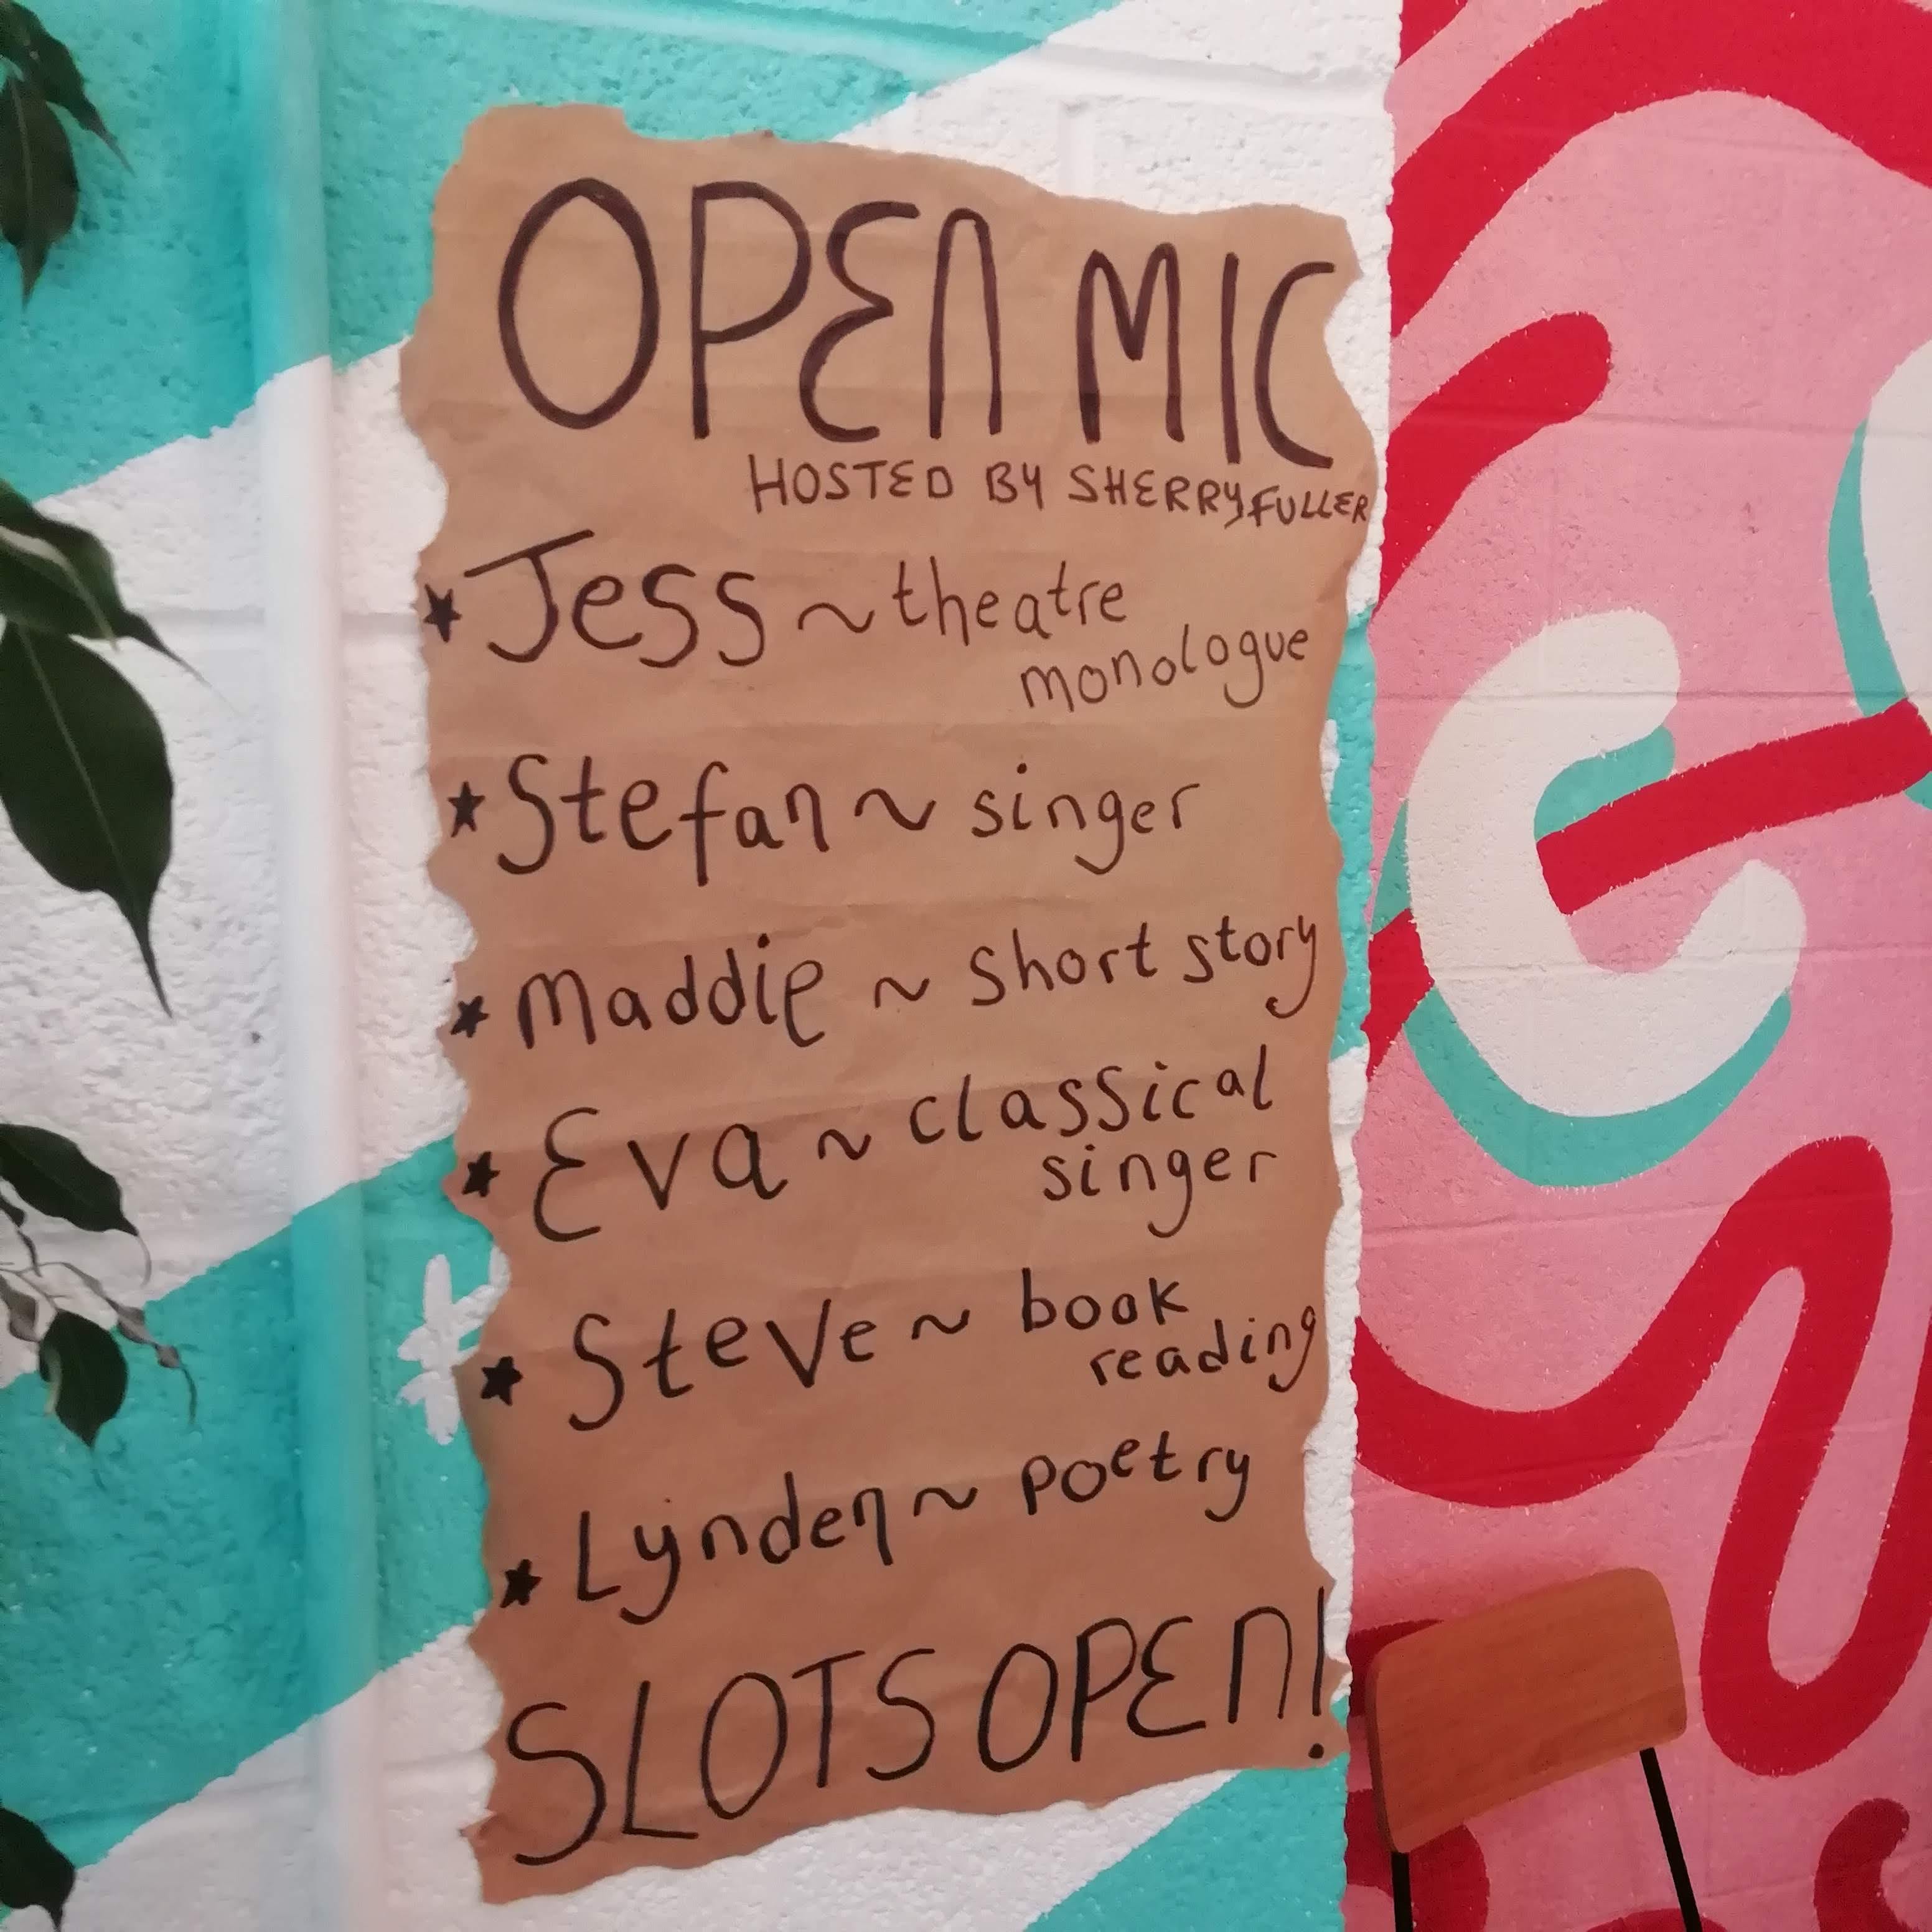 OPEN MIC
HOSTED BY SHERRY FULLER
★ Jess ~ theatre
monologue
★ Stefan ~ singer
★ Maddie ~ short story
★ Eva ~ classical
singer
★ Steve ~ book
reading
★ Lynden ~ poetry
SLOTS OPEN!